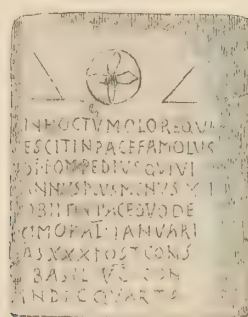 IN HOC TVMOLO REQVI
ESCIT IN PACE FAMOLVS
POMPEDIVS QVI VI
ANNVS PLVS MENVS
OBIIT IN PACE DVODE
CIMO IANVARI
AS XXX POST CONS
BASIL VC
INDEC QVARTS